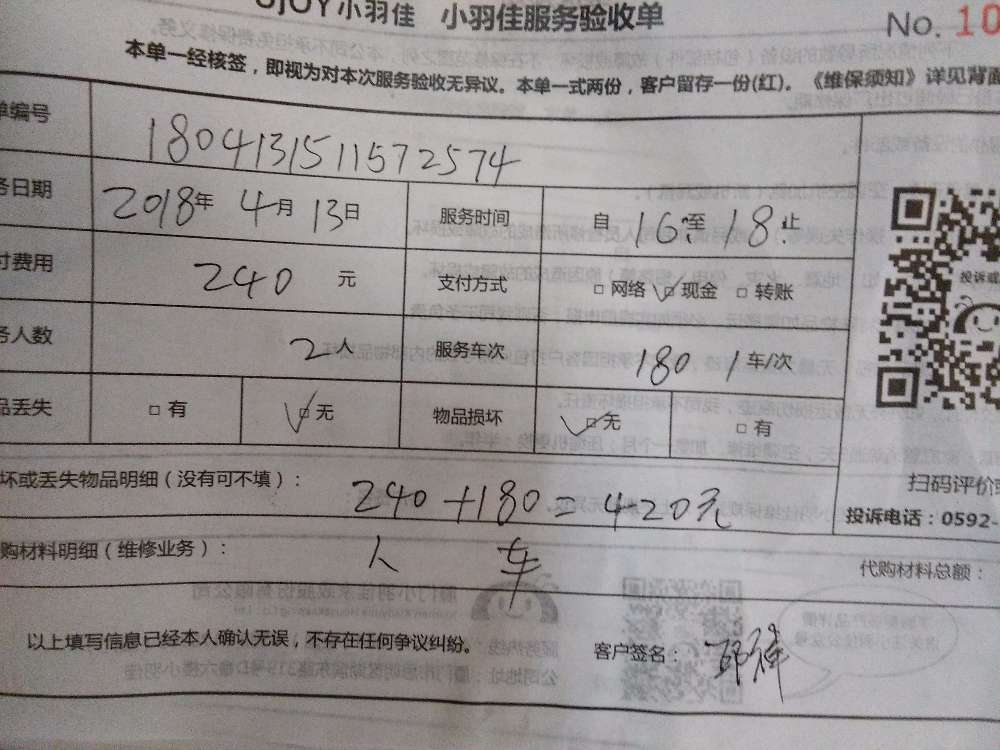 小羽佳 小羽佳服务验收单 No. 10
本单一经核签，即视为对本次服务验收无异议。本单一式两份，客户留存一份(红)。《维保须知》详见背面
单编号 1804131511572574
务日期 2018年 4月 13日 服务时间 自 16 至 18 止
付费用 240 元 支付方式 □ 网络 ☑ 现金 □ 转账
务人数 2人 服务车次 180 1 车/次
品丢失 □ 有 ☑ 无 物品损坏 ☑ 无 □ 有
投诉或
坏或丢失物品明细（没有可不填）： 240+180=420元
扫码评价或
投诉电话：0592-
购材料明细（维修业务）： 人 车 代购材料总额：
以上填写信息已经本人确认无误，不存在任何争议纠纷。 客户签名：